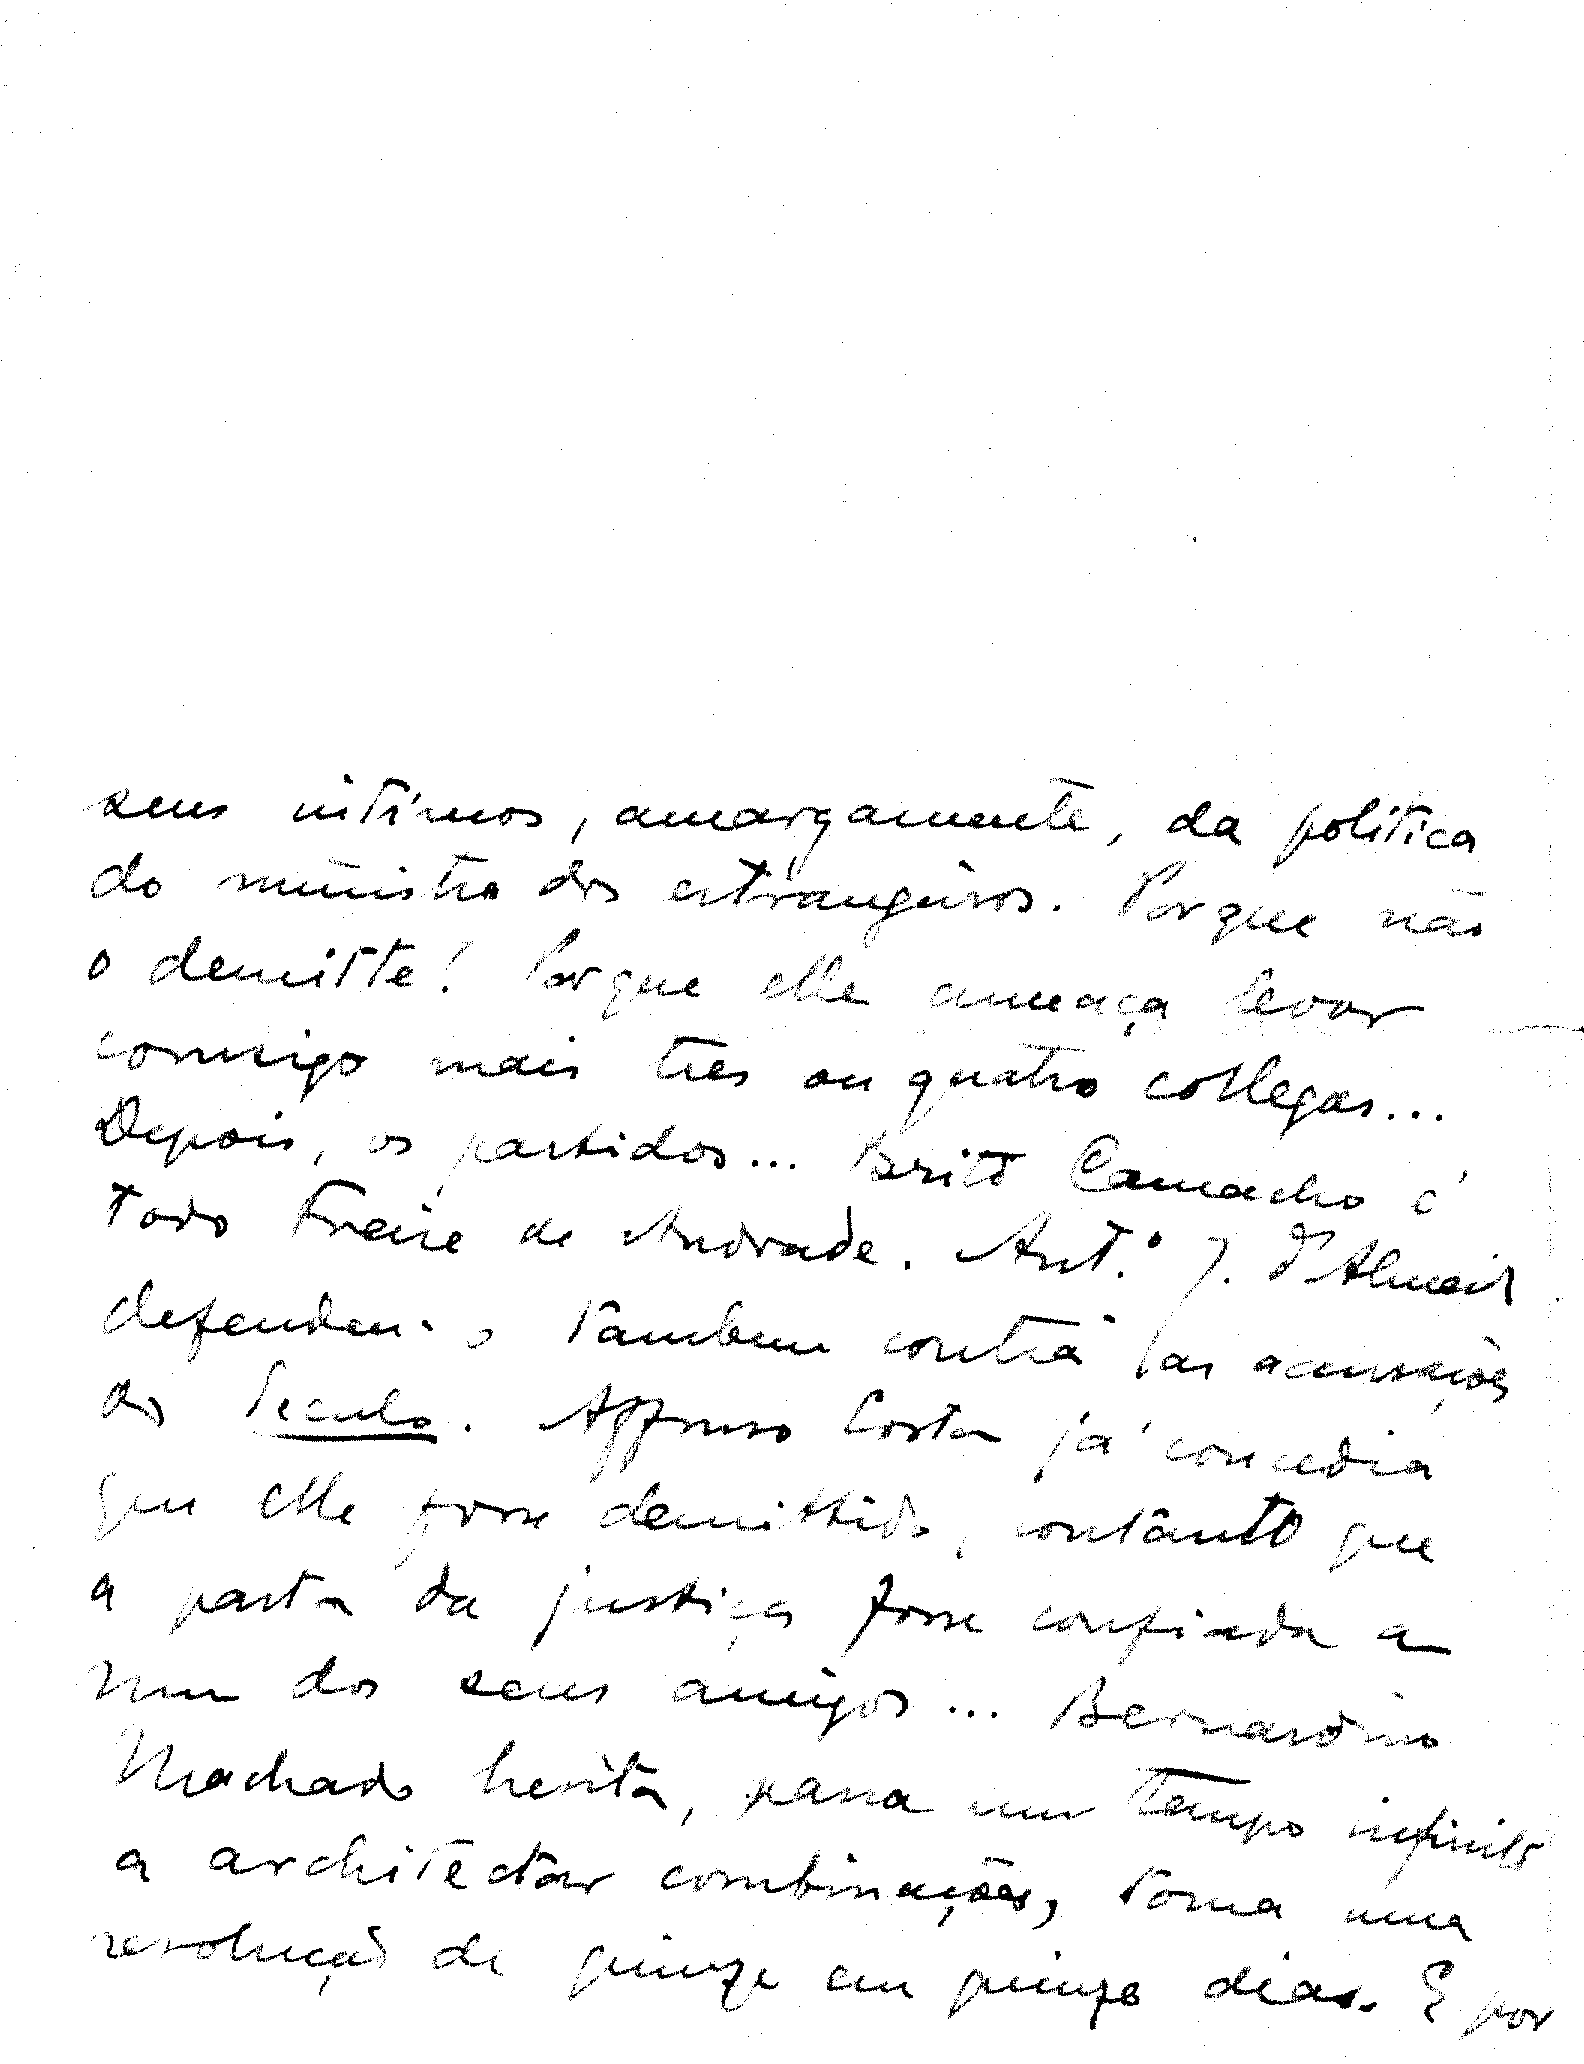 seus intimos, amargamente, da politica
do ministro dos estrangeiros. Porque não
o demitte! Porque elle ameaça levar
comsigo mais tres ou quatro collegas...
Depois, os partidos... Brito Camacho é
todo Freire de Andrade. Ant.º J. d'Almeida
defenden-o tambem contra as acusações
do Seculo. Affonso Costa já concedia
que elle fosse demittido, contanto que
a pasta da justiça fosse confiada a
um dos seus amigos... Bernardino
Machado hesita, passa um tempo infinito
a architectar combinações, toma uma
resolução de quinze em quinze dias. E por